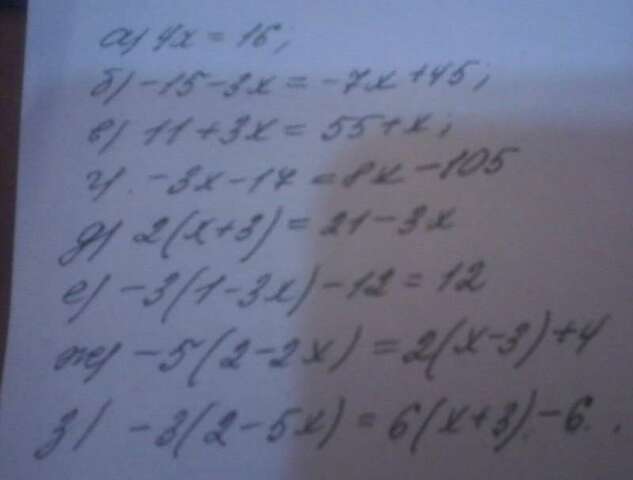 а) 4x = 16;
б) -15-3x = -7x+45;
в) 11+3x = 55+x;
г) -3x-17 = 8x-105
д) 2(x+3) = 21-3x
е) -3(1-3x)-12 = 12
ж) -5(2-2x) = 2(x-3)+4
з) -3(2-5x) = 6(x+3)-6.